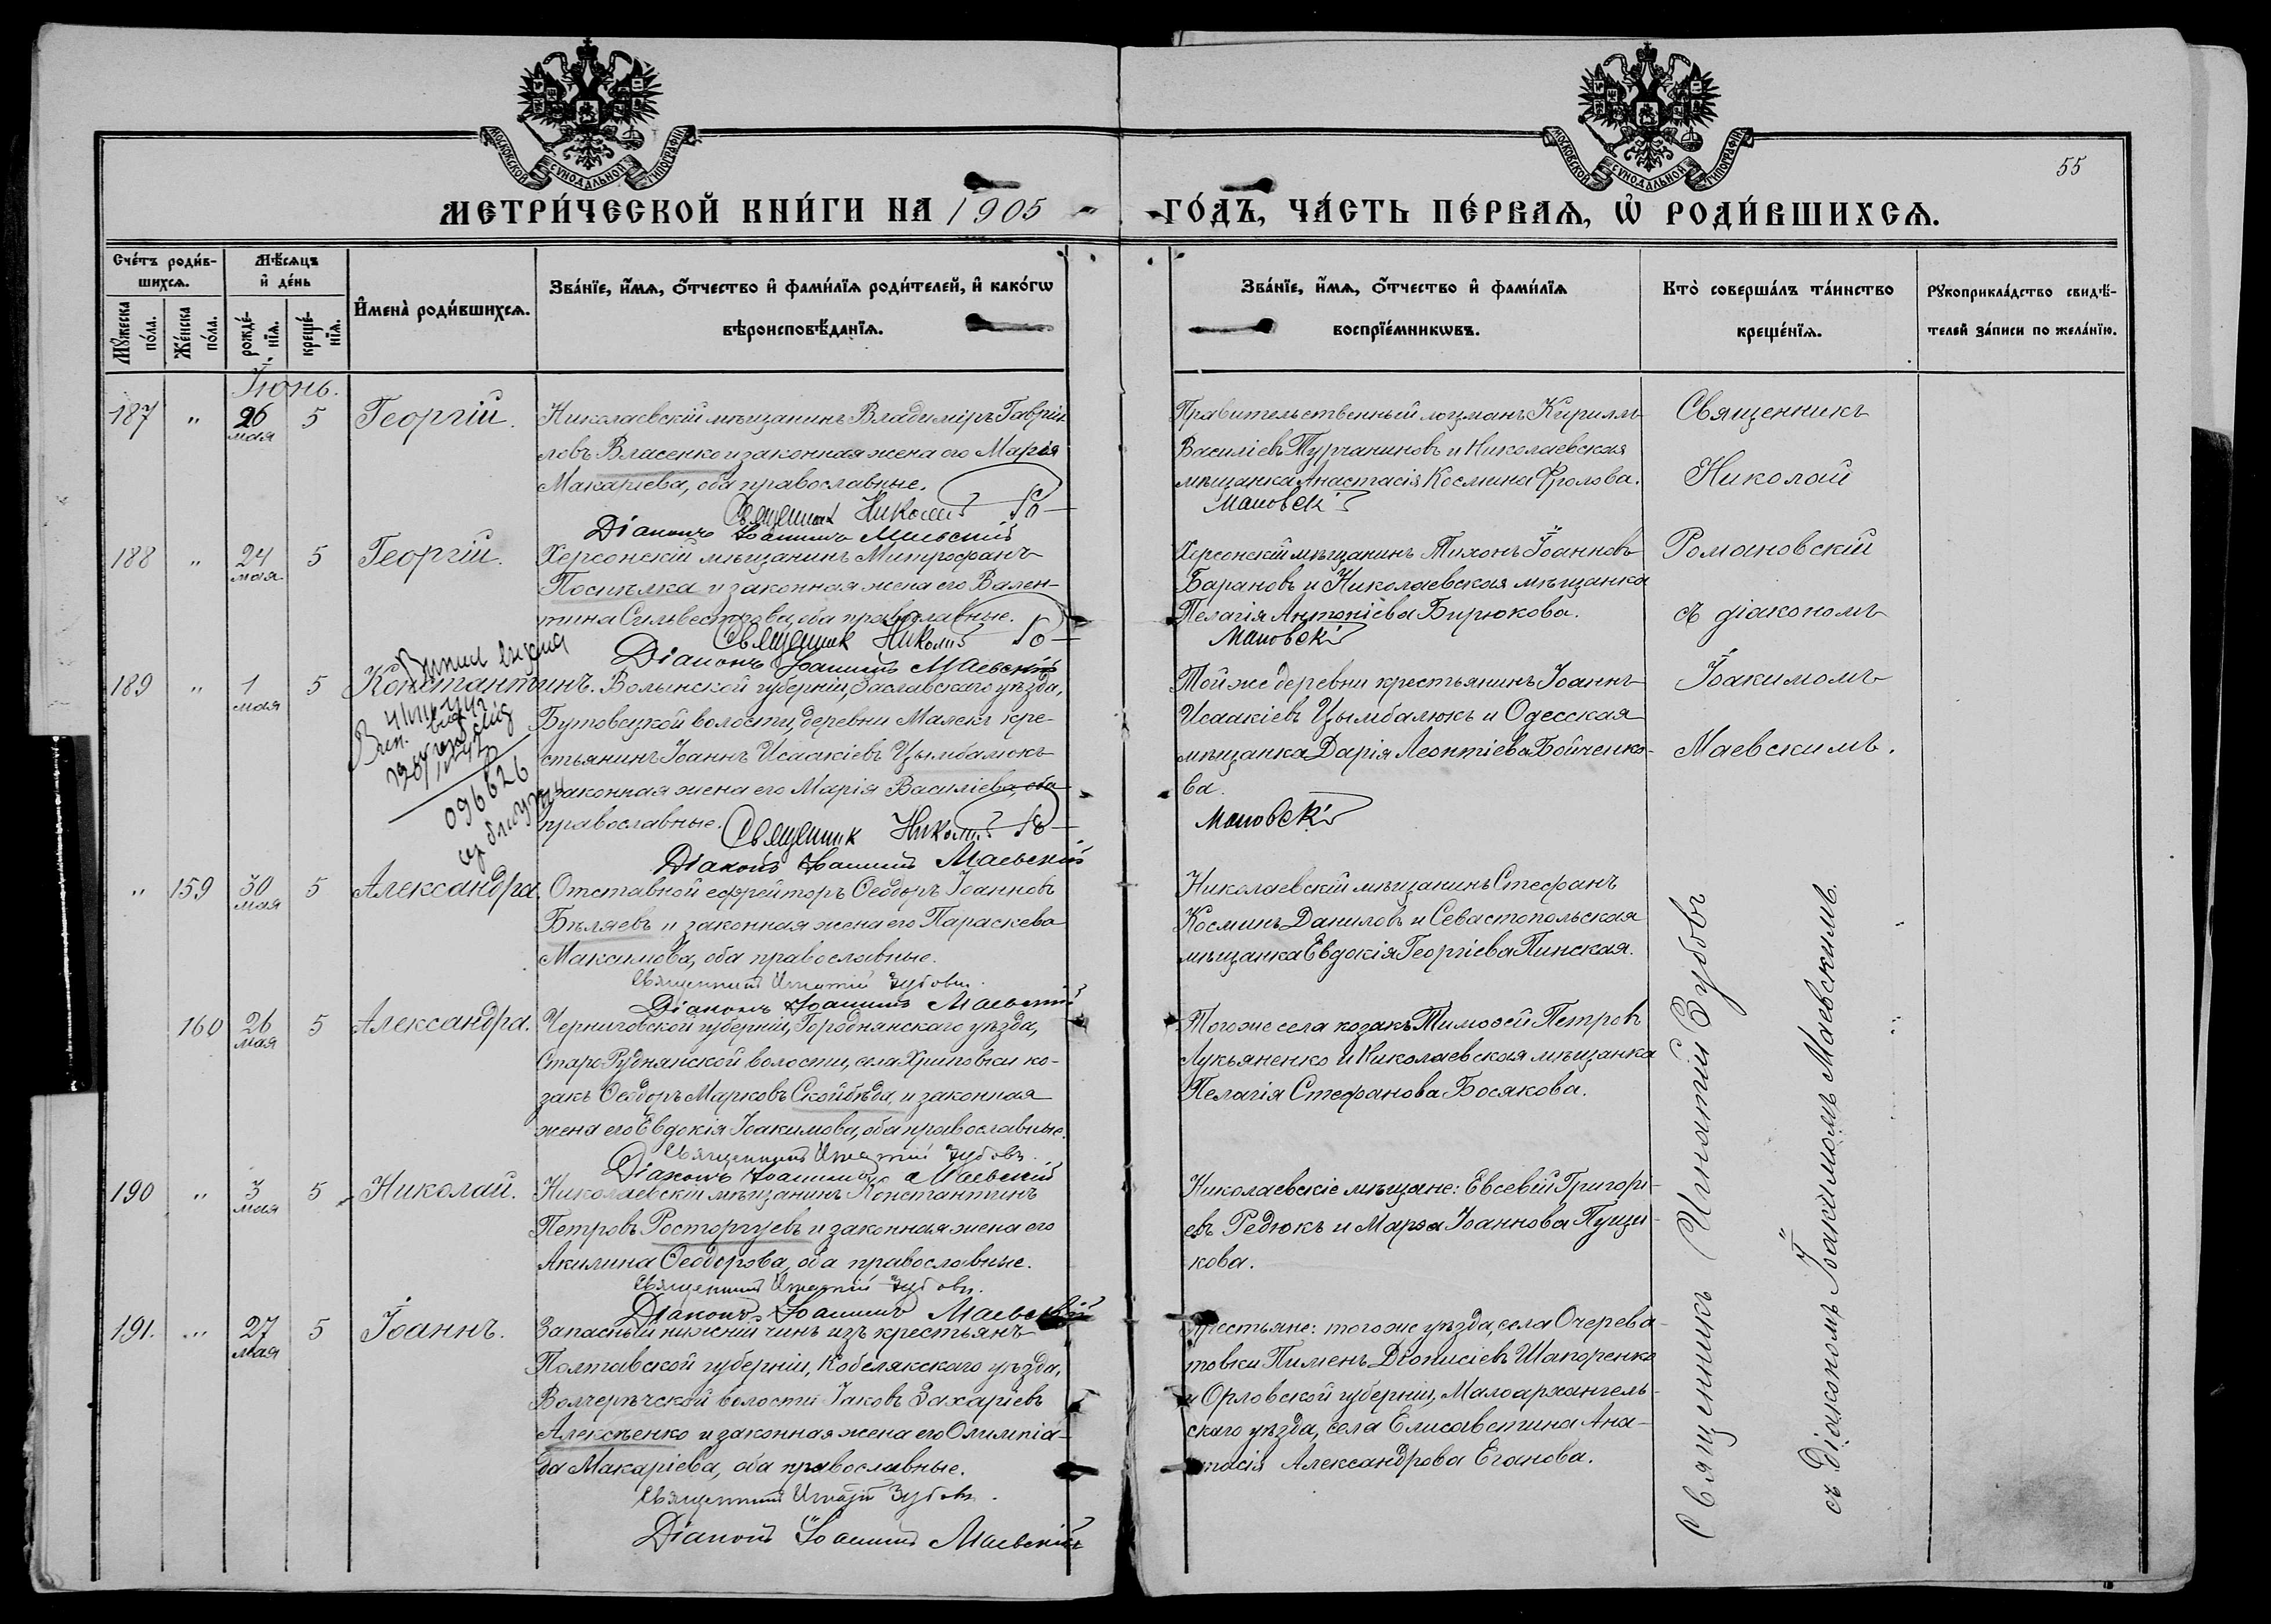 МОСКОВСКОЙ СѴНОДАЛЬНОЙ ТИПОГРАФІИ
МОСКОВСКОЙ СѴНОДАЛЬНОЙ ТИПОГРАФІИ
55
МЕТРИ́ЧЕСКОЙ КНИ́ГИ НА 1905 ГО́ДЪ, ЧА́СТЬ ПЕ́РВАѦ, Ѽ РОДИ́ВШИХСѦ.
Сче́тъ роди́вшихсѧ.
Мꙋ́жеска по́ла.
Же́нска по́ла.
Мѣ́сѧцъ и҆ де́нь
рожде́нїѧ.
креще́нїѧ.
И҆мена̀ роди́вшихсѧ.
Зва́нїе, и҆́мѧ, о҆́тчество и҆ фами́лїѧ роди́телей, и҆ како́гѡ
вѣроисповѣ́данїѧ.
Зва́нїе, и҆́мѧ, о҆́тчество и҆ фами́лїѧ
воспрїе́мникѡвъ.
Кто̀ соверша́лъ та́инство
креще́нїѧ.
Рꙋкоприкла́дство свидѣ́-
телей за́писи по жела́нїю.
Іюнь.
187 " 26 мая 5 Георгій.
Николаевскій мѣщанинъ Владиміръ Гаврiи-
ловъ Власенко и законная жена его Марія
Макаріева, оба православные.
Священникъ Николай Ро-
Діаконъ Іоакимъ Маевскій
Правительственный лоцманъ Кириллъ
Василіевъ Турчаниновъ и Николаевская
мѣщанка Анастасія Космина Фролова.
мановскій
Священникъ
Николай
188 " 24 мая 5 Георгій.
Херсонскій мѣщанинъ Митрофанъ
Поспѣлка и законная жена его Вален-
тина Сильвестрова, оба православные.
Священникъ Николай Ро-
Діаконъ Іоакимъ Маевскій
Херсонскій мѣщанинъ Тихонъ Іоанновъ
Барановъ и Николаевская мѣщанка
Пелагія Антоніева Бирюкова.
мановскій
Романовскій
съ діакономъ
189 " 1 мая 5 Константинъ.
096626
Волынской губерніи, Заславскаго уѣзда,
Бутовецкой волости, деревни Малекъ кре-
стьянинъ Іоаннъ Исаакіевъ Цымбалюкъ
и законная жена его Марія Василіева, оба
православные.
Священникъ Николай Ро-
Діаконъ Іоакимъ Маевскій
Той же деревни крестьянинъ Іоаннъ
Исаакіевъ Цымбалюкъ и Одесская
мѣщанка Дарія Леонтіева Бойченко-
ва.
мановскій
Іоакимомъ
Маевскимъ.
" 159 30 мая 5 Александра.
Отставной ефрейторъ Ѳеодоръ Іоанновъ
Бѣляевъ и законная жена его Параскева
Максимова, оба православные.
Священникъ Игнатій Зубовъ.
Діаконъ Іоакимъ Маевскій
Николаевскій мѣщанинъ Стефанъ
Косминъ Даниловъ и Севастопольская
мѣщанка Евдокія Георгіева Пинская.
160 26 мая 5 Александра.
Черниговской губерніи, Городнянскаго уѣзда,
Старо Руднянской волости, села Хриповки ко-
закъ Ѳеодоръ Марковъ Скойбѣда, и законная
жена его Евдокія Іоакимова, оба православные.
Священникъ Игнатій Зубовъ.
Діаконъ Іоакимъ Маевскій
Того же села козакъ Тимоѳей Петровъ
Лукьяненко и Николаевская мѣщанка
Пелагія Стефанова Босякова.
190 " 3 мая 5 Николай.
Николаевскій мѣщанинъ Константинъ
Петровъ Росторгуевъ и законная жена его
Акилина Ѳеодорова, оба православные.
Священникъ Игнатій Зубовъ.
Діаконъ Іоакимъ Маевскій
Николаевскіе мѣщане: Евсевій Григорі-
евъ Редюкъ и Марѳа Іоаннова Пущи-
кова.
191. " 27 мая 5 Іоаннъ.
Запасный нижній чинъ изъ крестьянъ
Полтавской губерніи, Кобелякскаго уѣзда,
Волчерѣчской волости Іаковъ Захаріевъ
Алексѣенко и законная жена его Олимпіа-
да Макаріева, оба православные.
Священникъ Игнатій Зубовъ.
Діаконъ Іоакимъ Маевскій
Крестьяне: того же уѣзда, села Очерева-
товки Пименъ Діонисіевъ Шапоренко
и Орловской губерніи, Малоархангель-
скаго уѣзда, села Елисаветина Ана-
стасія Александрова Еганова.
Священникъ Игнатій Зубовъ
съ Діакономъ Іоакимомъ Маевскимъ.